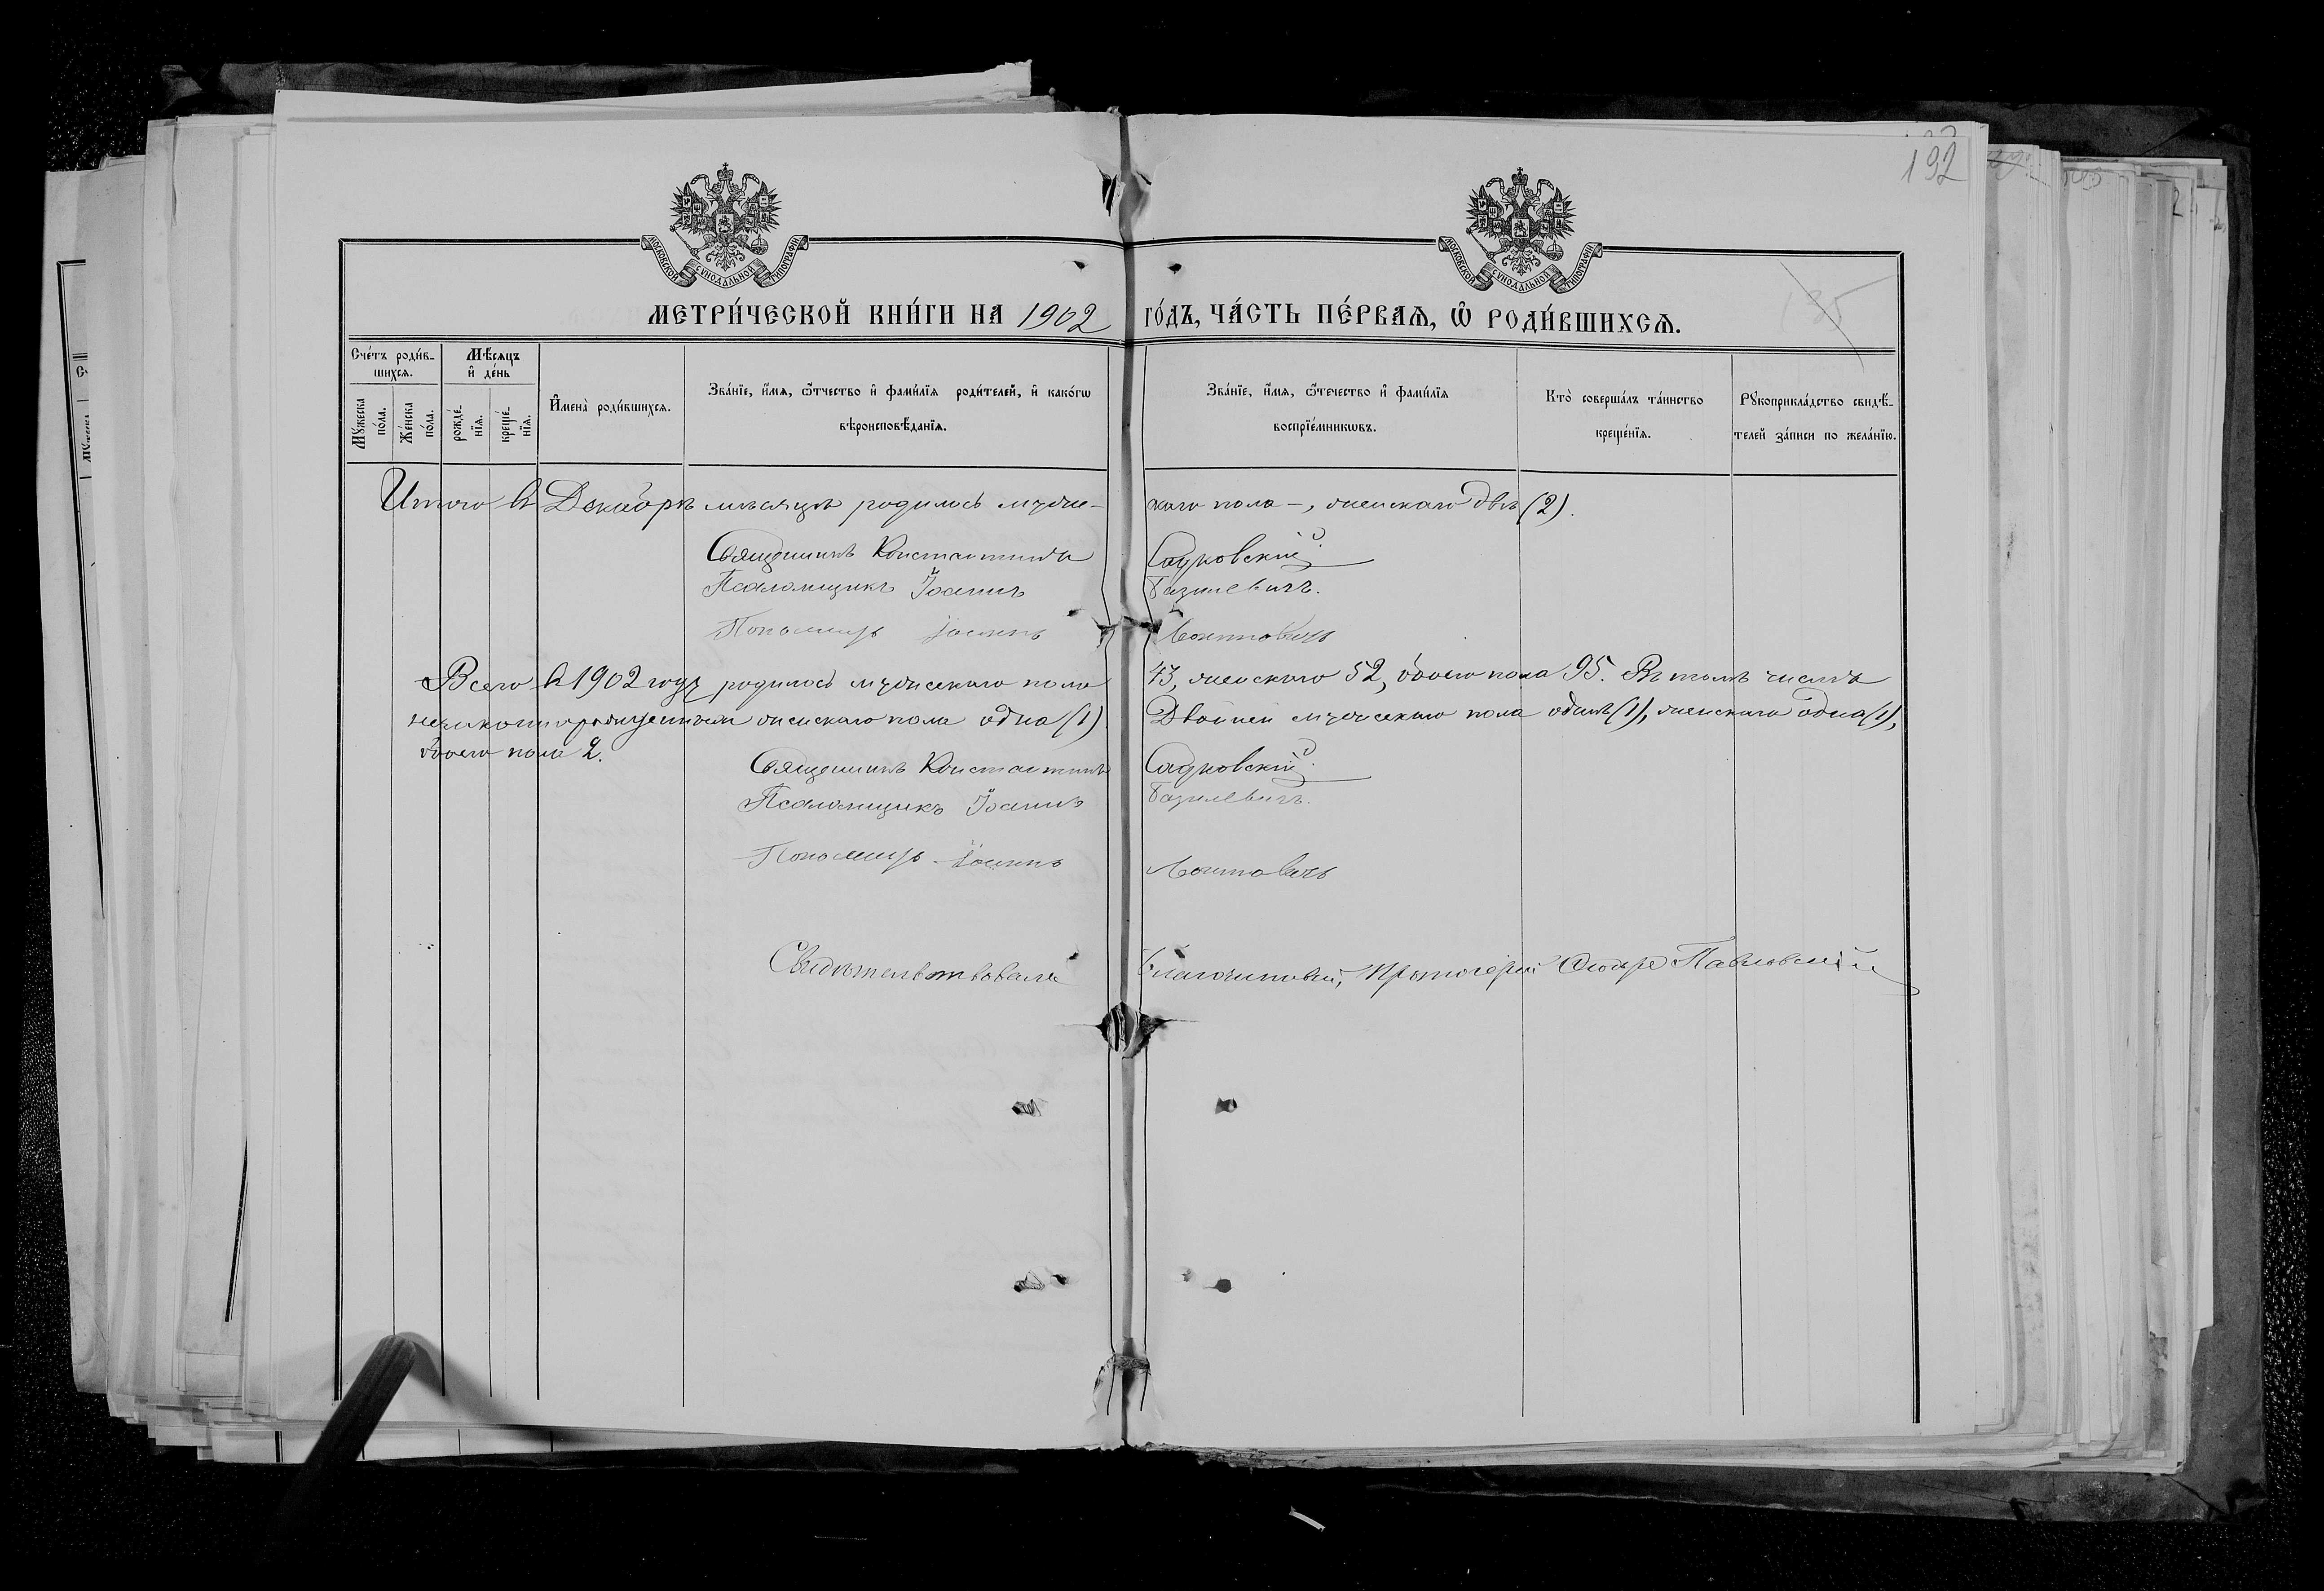 192
МОСКОВСКОЙ СУНОДАЛЬНОЙ ТИПОГРАФІИ
МОСКОВСКОЙ СУНОДАЛЬНОЙ ТИПОГРАФІИ
МЕТРИ́ЧЕСКОЙ КНИ́ГИ НА 1902 ГО́ДЪ, ЧА́СТЬ ПЕ́РВАѦ, Ѡ҆ РОДИ́ВШИХСѦ.
135
Сче́тъ роди́в-
шихсѧ.
Мѣ́сѧцъ
и҆ де́нь
Мꙋ́жеска
по́ла.
Же́нска
по́ла.
рожде́-
нїѧ.
креще́-
нїѧ.
И҆мена̀ роди́вшихсѧ.
Зва́нїе, и҆́мѧ, ѻ҆́тчество и҆ фами́лїѧ роди́телей, и҆ како́гѡ
вѣроисповѣ́данїѧ.
Зва́нїе, и҆́мѧ, ѻ҆́течество и҆ фами́лїѧ
воспрїе́мникѡвъ.
Кто̀ соверша́лъ та́инство
креще́нїѧ.
Рꙋкоприкла́дство свидѣ́-
телей за́писи по жела́нїю.
Итого въ Декабрѣ мѣсяцѣ родилось мужс- каго пола —, женскаго двѣ (2).
Священникъ Константинъ Садковскій
Псаломщикъ Іоаннъ Базилевичъ.
Пономарь Іоаннъ
Всего въ 1902 году родилось мужескаго пола 43, женскаго 52, обоего пола 95. Въ томъ числѣ
незаконнорожденная женскаго пола одна (1). Двойней мужескаго пола одинъ (1), женскаго одна (1),
обоего пола 2.
Священникъ Константинъ Садковскій
Псаломщикъ Іоаннъ Базилевичъ.
Пономарь Іоаннъ
Свидѣтельствовалъ Благочинный, Протоіерей Павловскій